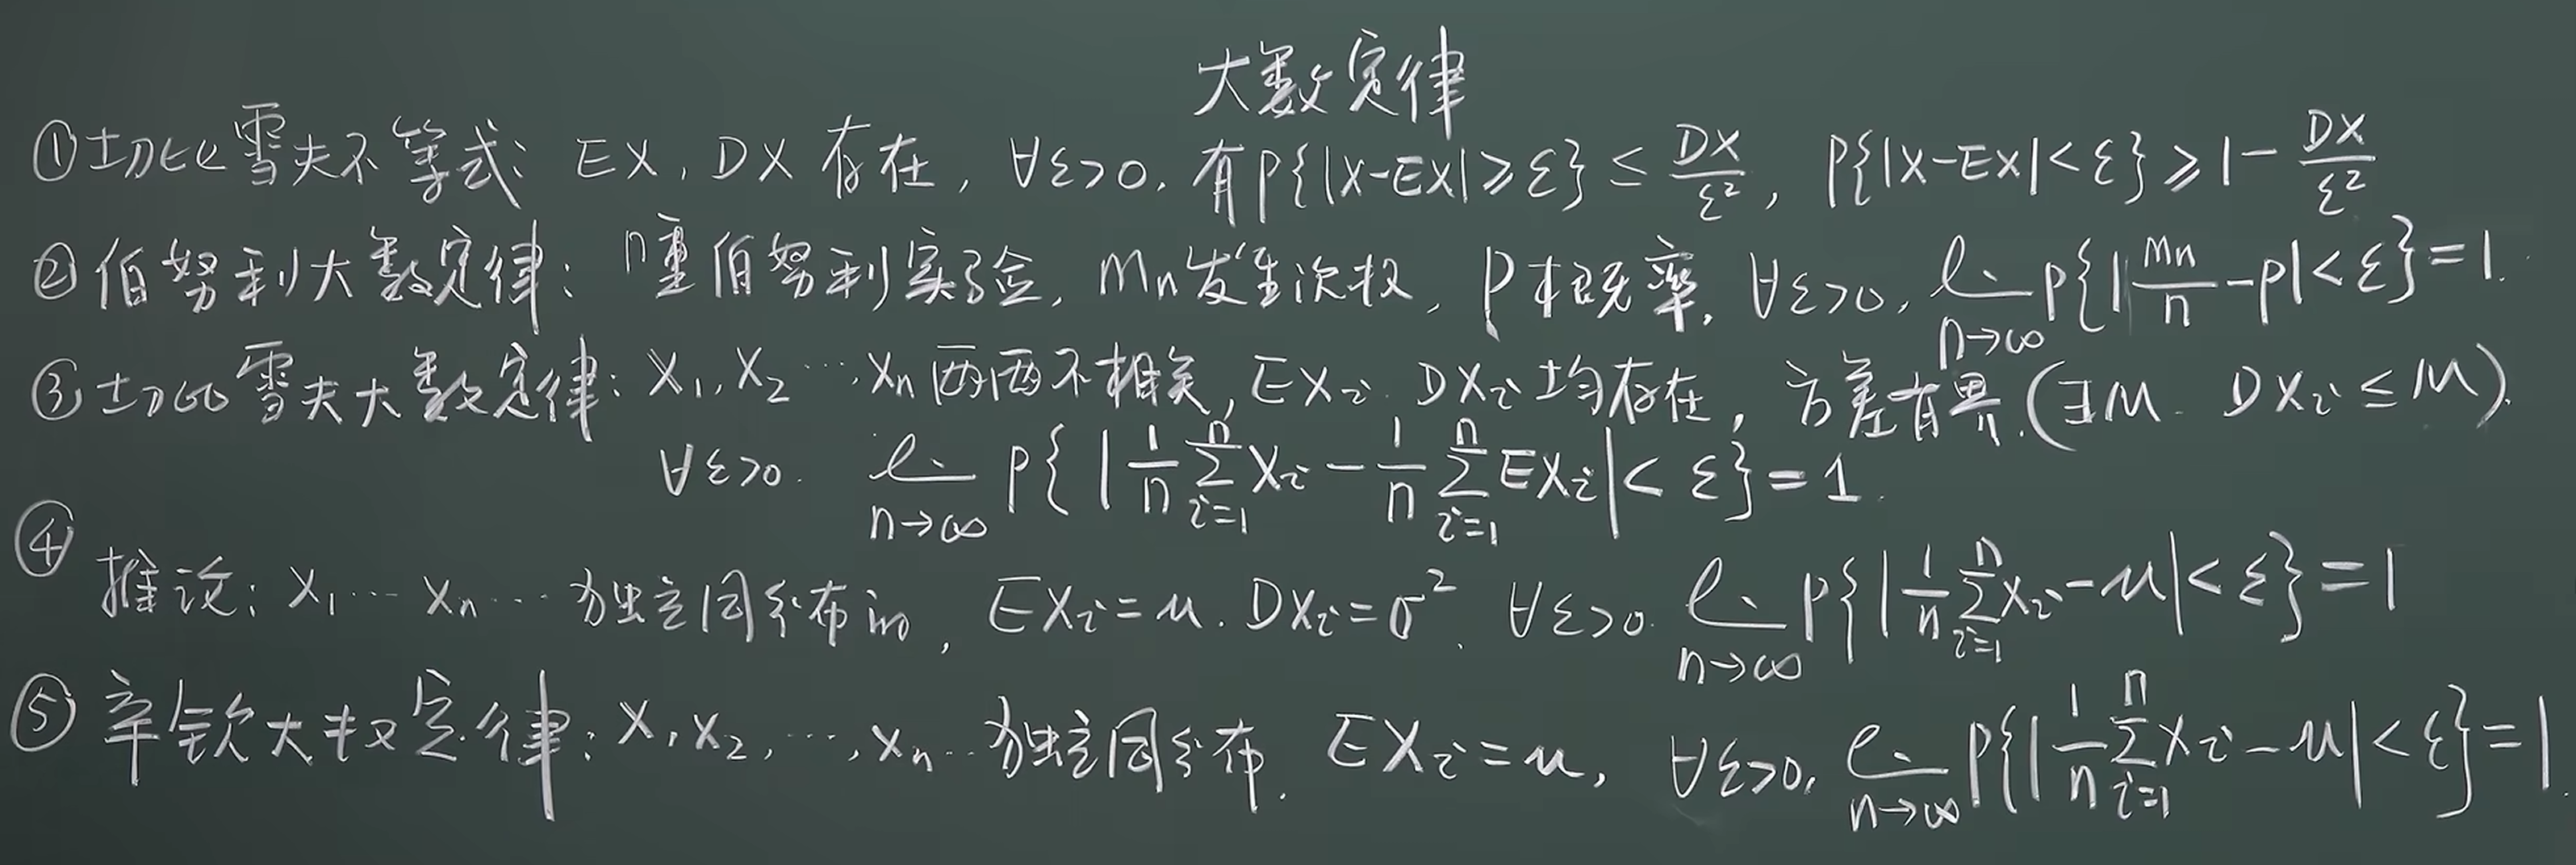 大数定律
①切比雪夫不等式: EX, DX 存在, ∀ε>0. 有P{|X-EX|≥ε}≤DX/ε², P{|X-EX|<ε}≥1-DX/ε²
②伯努利大数定律: n重伯努利实验, Mn发生次数, P概率, ∀ε>0, lim_{n→∞} P{|Mn/n-P|<ε}=1.
③切比雪夫大数定律: X₁,X₂…,Xn两两不相关, EXi. DXi均存在, 方差有界.(∃M. DXi≤M).
∀ε>0. lim_{n→∞} P{|1/n∑_{i=1}^{n}Xi-1/n∑_{i=1}^{n}EXi|<ε}=1.
④推论: X₁…Xn… 独立同分布的, EXi=μ. DXi=σ². ∀ε>0. lim_{n→∞} P{|1/n∑_{i=1}^{n}Xi-μ|<ε}=1
⑤辛钦大数定律: X₁,X₂,…,Xn…独立同分布. EXi=μ, ∀ε>0, lim_{n→∞} P{|1/n∑_{i=1}^{n}Xi-μ|<ε}=1.